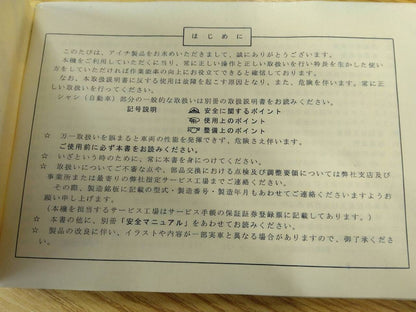 はじめに
このたびは、アイチ製品をお求めいただきまして、誠にありがとうございます。
本機をご利用していただくに当り、常に正しい操作と正しい取扱いを行い特長を生かした使い
方をしていただければ作業能率の向上にお役立てできると確信しております。
なお、本取扱説明書に反する使用は故障を起こす原因となり、また、危険を伴います。常に正
しい取扱いを行ってください。
シャシ(自動車)部分の一般的な取扱いは別冊の取扱説明書をお読みください。
記号説明 安全に関するポイント
使用上のポイント
整備上のポイント
☆ 万一取扱いを誤まると車両の性能を発揮できず、危険さえ伴います。
ご使用前に必ず本書をお読みください。
☆ いざという時のために、常に本書を身につけてください。
☆ 取扱いについてご不審な点や、部品交換における点検及び調整要領については弊社支店及び
事業所または最寄りの弊社指定サービス工場までご連絡ください。
その際、製造銘板に記載の型式・製造番号・製造年月もあわせてご連絡くださいますようお
願い申し上げます。
(本機を担当するサービス工場はサービス手帳の保証証券登録票に記載してあります。)
☆ 本書の他に、別冊「安全マニュアル」をあわせてお読みください。
☆ 製品の改良に伴い、イラストや内容が一部実車と異なる場合がありますので、御了承くださ
い。